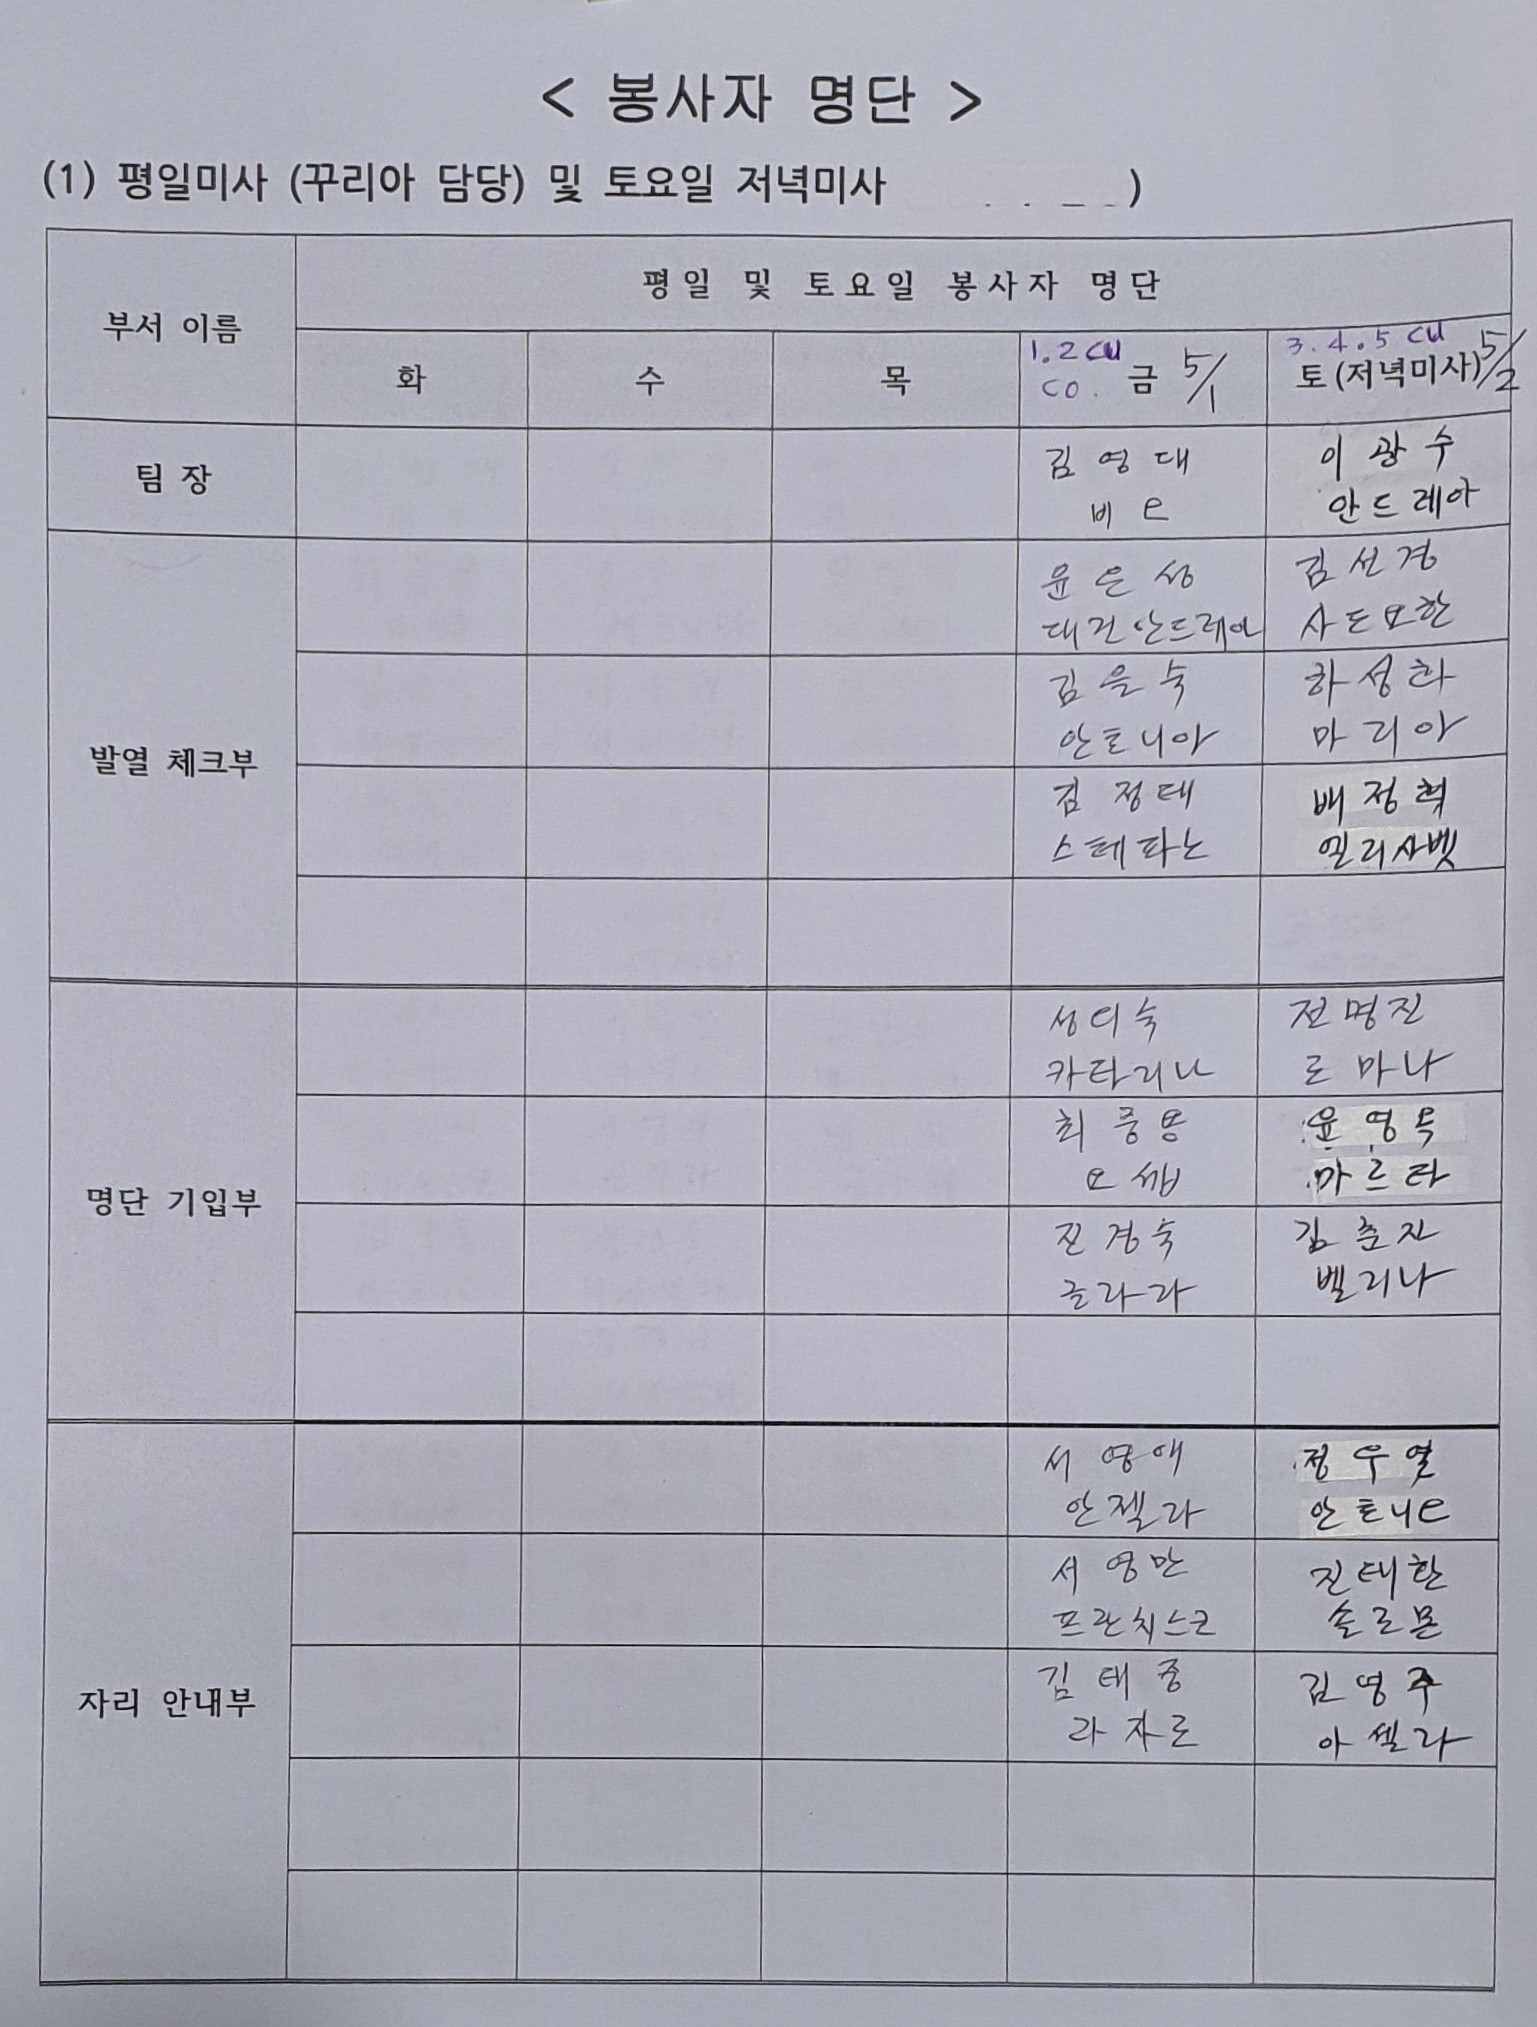 < 봉사자 명단 >
(1) 평일미사 (꾸리아 담당) 및 토요일 저녁미사 )
부서 이름
평일 및 토요일 봉사자 명단
화
수
목
1.2 CU
CO.
금 5/1
3.4.5 CU
토(저녁미사) 5/2
팀 장
김영대
비오
이광수
안드레아
발열 체크부
윤은성
대건안드레아
김선경
사도요한
김을숙
안토니아
하성화
마리아
김정태
스테파노
배정혁
엘리사벳
명단 기입부
카타리나
전명진
로마나
최풍용
요셉
마르타
진경숙
글라라
김춘자
벨리나
자리 안내부
서영애
안젤라
정우열
안토니오
서영만
프란치스코
진태한
솔로몬
김태중
라자로
김영주
아셀라